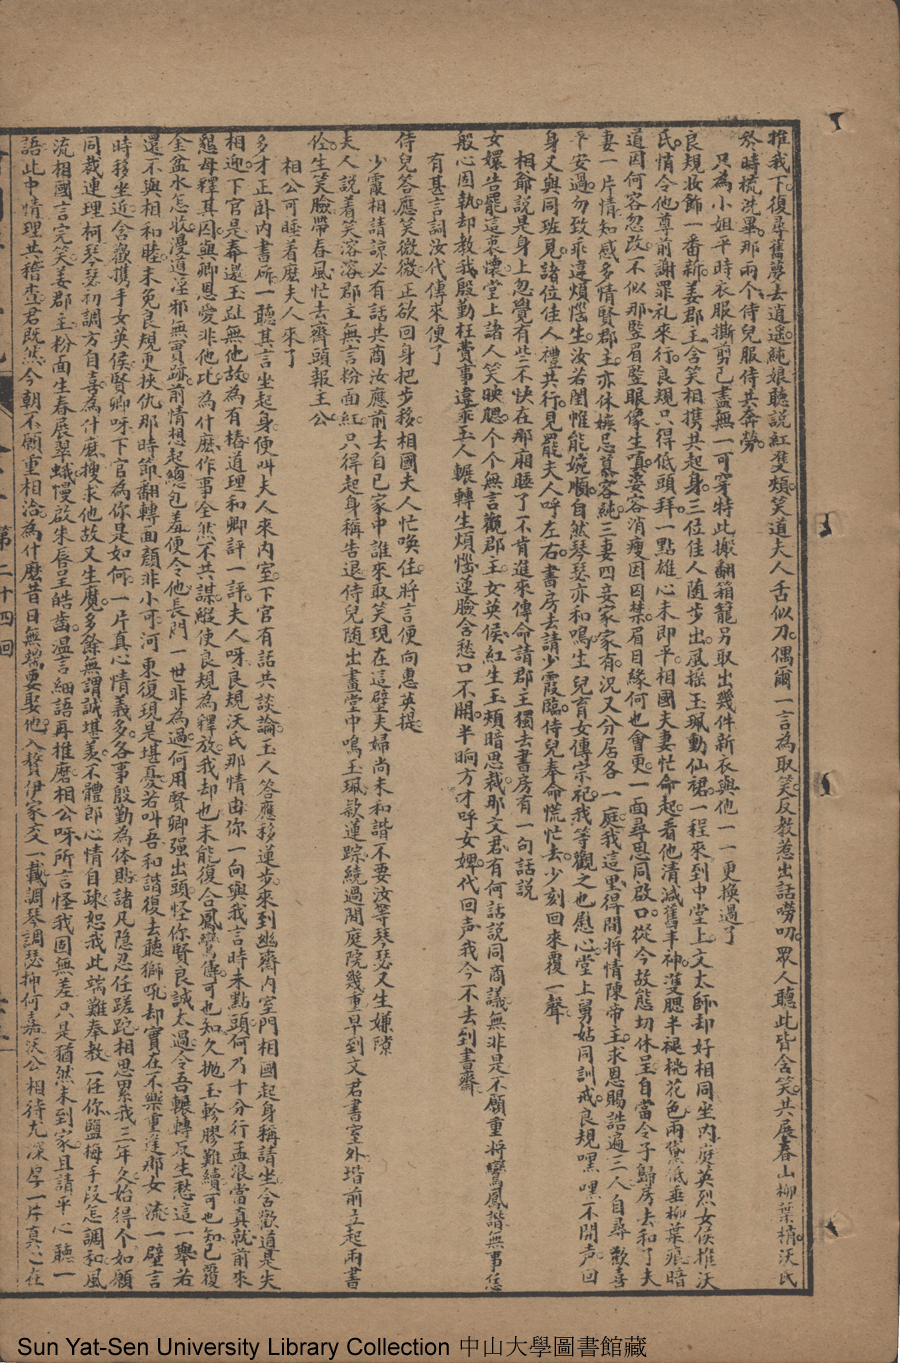 推我下。復尋舊夢去逍遙。純娘聽說紅雙頰。笑道夫人舌似刀。偶爾一言為取笑。反教惹出話嘮叨。眾人聽此皆含笑。共展春山柳葉梢。沃氏
祭時梳洗畢。那兩個侍兒服侍共奔勞。
只為小姐平時衣服撕剪已盡無一可穿特此搬翻箱籠另取出幾件新衣與他一一更換過了
良規妝飾一番新。姜郡王含笑相携共起身。三位佳人随步出。風搖玉珮動仙裙。一程來到中堂上。文太師却好相同坐內庭。英烈女侯推沃
氏。情令他尊前謝罪礼來行。良規只得低頭拜。一點雄心未即平。相國夫妻忙命起。看他清減舊丰神。雙腮半褪桃花色。兩黛低垂柳葉痕。暗
道因何容忽改。不似那豎眉豎眼像生嗔。姿容消瘦因因禁。眉目緣何也會更。一面尋思同啟口。從今故態切休呈。自當令子歸房去。和了夫
妻一片情。知感多情賢郡主。亦休嫉忌慕容純。三妻四妾家家有。况又分居各一庭。我這里得間將情陳帝主。求恩賜誥遍三人。自尋歡喜
平安過。勿致乖違煩惱生。汝若閨帷能婉順。自然琴瑟亦和鳴。生兒育女傳宗祀。我等觀之也慰心。堂上舅姑同訓戒。良規嘿嘿不開声。回
身又與同班見。諸位佳人禮共行。見罷夫人呼左右。書房去請少霞臨。侍兒奉命慌忙去。少刻回來覆一聲
相爺說是身上忽覺有些不快在那廂睡了不肯進來傳命請郡主獨去書房有一句話說
女嬛告罷這衷懷。堂上諸人笑映腮。个个無言觀郡主。女英侯紅生玉頰暗思裁。那文君有何話說同商議。無非是不願重將鸞鳳諧。無事恁
般心固執。却教我殷勤枉費事違乖。玉人輾轉生煩惱。蓮臉含愁口不開。半晌方才呼女婢。代回声我今不去到書齋
有甚言詞汝代傳來便了
侍兒答應笑微微。正欲回身把步移。相國夫人忙喚住。將言便向惠英提
少霞相請諒必有話共商汝應前去自已家中誰來取笑現在這壁夫婦尚未和諧不要汝等琴瑟又生嫌隙
夫人說着笑溶溶。郡主無言粉面紅。只得起身稱告退。侍兒随出畫堂中。鳴玉珮。欵蓮踪。繞過閒庭院幾重。早到文君書室外。堦前立起兩書
佺。生笑臉帶春風。忙去齋頭報主公
相公可睡着麼夫人來了
多才正卧內書齋。一聽其言坐起身。便叫夫人來內室。下官有話共談論。玉人答應移蓮步。來到幽齋內室門。相國起身稱請坐。含歡道是失
相迎。下官是奉還玉趾無他故。為有樁道理和卿評一評。夫人呀良規沃氏那情由。你一向與我言時未點頭。何乃十分行孟浪。當真就前來
懇母釋其囚。與卿恩愛非他比。為什麽作事全然不共謀。縱使良規為釋放。我却也未能復合鳳鸞儔。可也知久拋玉軫膠難續。可也知已覆
金盆水怎收。漫道淫邪無實跡。前情想起總包羞。便令他長門一世非為過。何用賢卿强出頭。怪你賢良誠太過。令吾輾轉反生愁。這一舉若
還不與相和睦。未免良規更挾仇。那時節翻轉面顏非小可。河東復現是堪憂。若叫吾和諧復去聽獅吼。却實在不樂重逢那女流。一壁言
時移坐近。含歡携手女英侯。賢卿呀下官為你是如何。一片真心情義多。各事殷勤為体貼。諸凡隐忍任蹉跎。相思累我三年久。始得个如願
同栽連理柯。琴瑟初調方自喜。為什麽搜求他故又生魔。多餘無謂誠堪羡。不體郎心情自疎。恕我此端難奉教。一任你鹽梅手段怎調和。風
流相國言完笑。姜郡主粉面生春展翠蛾。慢啟朱唇呈皓齒。溫言細語再推磨。相公呀所言怪我固無差。只是猶然未到家。且請平心聽一
語。此中情理共稽查。君既然今朝不願重相洽。為什麽昔日無端要娶他。入贅伊家交一載。調琴調瑟抑何嘉。沃公相待尤深厚。一片真心在
第二十四回
Sun Yat-Sen University Library Collection 中山大學圖書館藏